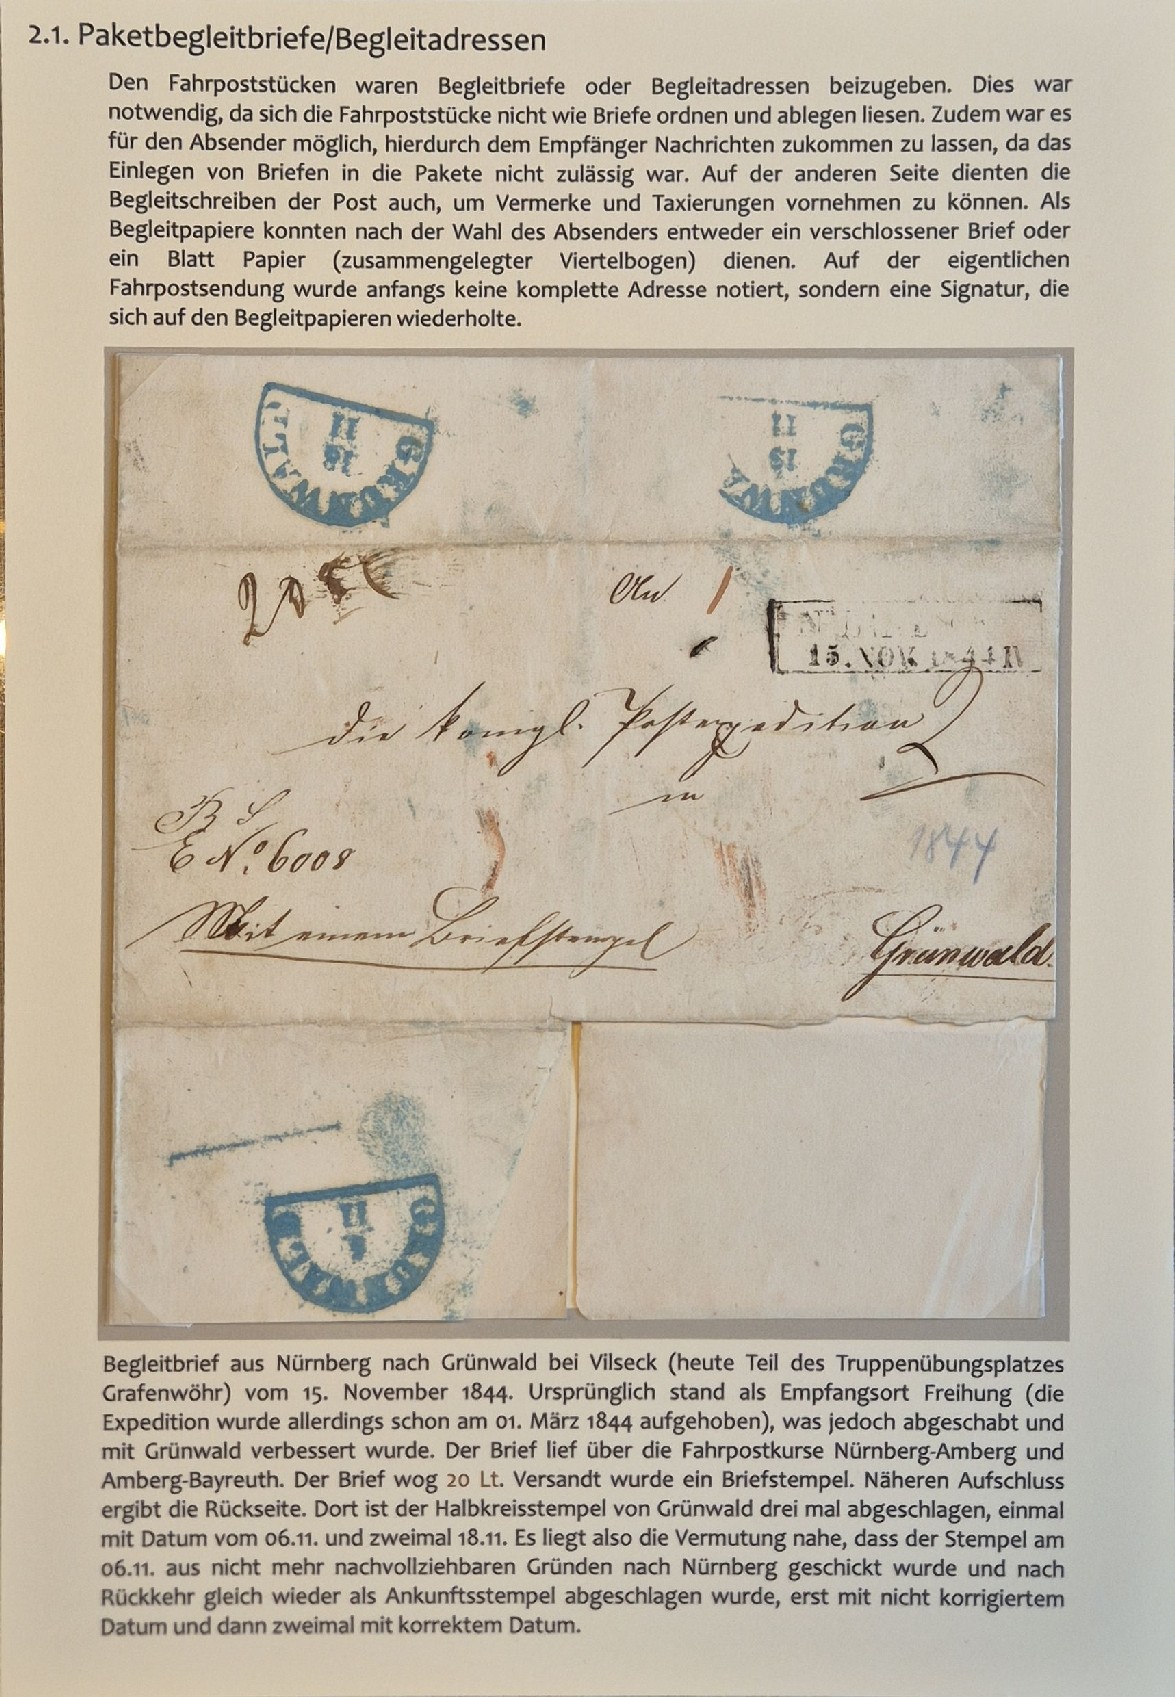 2.1. Paketbegleitbriefe/Begleitadressen
Den Fahrpoststücken waren Begleitbriefe oder Begleitadressen beizugeben. Dies war
notwendig, da sich die Fahrpoststücke nicht wie Briefe ordnen und ablegen liesen. Zudem war es
für den Absender möglich, hierdurch dem Empfänger Nachrichten zukommen zu lassen, da das
Einlegen von Briefen in die Pakete nicht zulässig war. Auf der anderen Seite dienten die
Begleitschreiben der Post auch, um Vermerke und Taxierungen vornehmen zu können. Als
Begleitpapiere konnten nach der Wahl des Absenders entweder ein verschlossener Brief oder
ein Blatt Papier (zusammengelegter Viertelbogen) dienen. Auf der eigentlichen
Fahrpostsendung wurde anfangs keine komplette Adresse notiert, sondern eine Signatur, die
sich auf den Begleitpapieren wiederholte.
GRUNWALD
18
11
GRUNWA
18
11
20
An
15. NOV. 1844 IV
die königl. Postexpedition
in
B S
E No. 6008
1844
Mit einem Briefstempel
Grünwald.
GRUNWALD
6
11
Begleitbrief aus Nürnberg nach Grünwald bei Vilseck (heute Teil des Truppenübungsplatzes
Grafenwöhr) vom 15. November 1844. Ursprünglich stand als Empfangsort Freihung (die
Expedition wurde allerdings schon am 01. März 1844 aufgehoben), was jedoch abgeschabt und
mit Grünwald verbessert wurde. Der Brief lief über die Fahrpostkurse Nürnberg-Amberg und
Amberg-Bayreuth. Der Brief wog 20 Lt. Versandt wurde ein Briefstempel. Näheren Aufschluss
ergibt die Rückseite. Dort ist der Halbkreisstempel von Grünwald drei mal abgeschlagen, einmal
mit Datum vom 06.11. und zweimal 18.11. Es liegt also die Vermutung nahe, dass der Stempel am
06.11. aus nicht mehr nachvollziehbaren Gründen nach Nürnberg geschickt wurde und nach
Rückkehr gleich wieder als Ankunftsstempel abgeschlagen wurde, erst mit nicht korrigiertem
Datum und dann zweimal mit korrektem Datum.